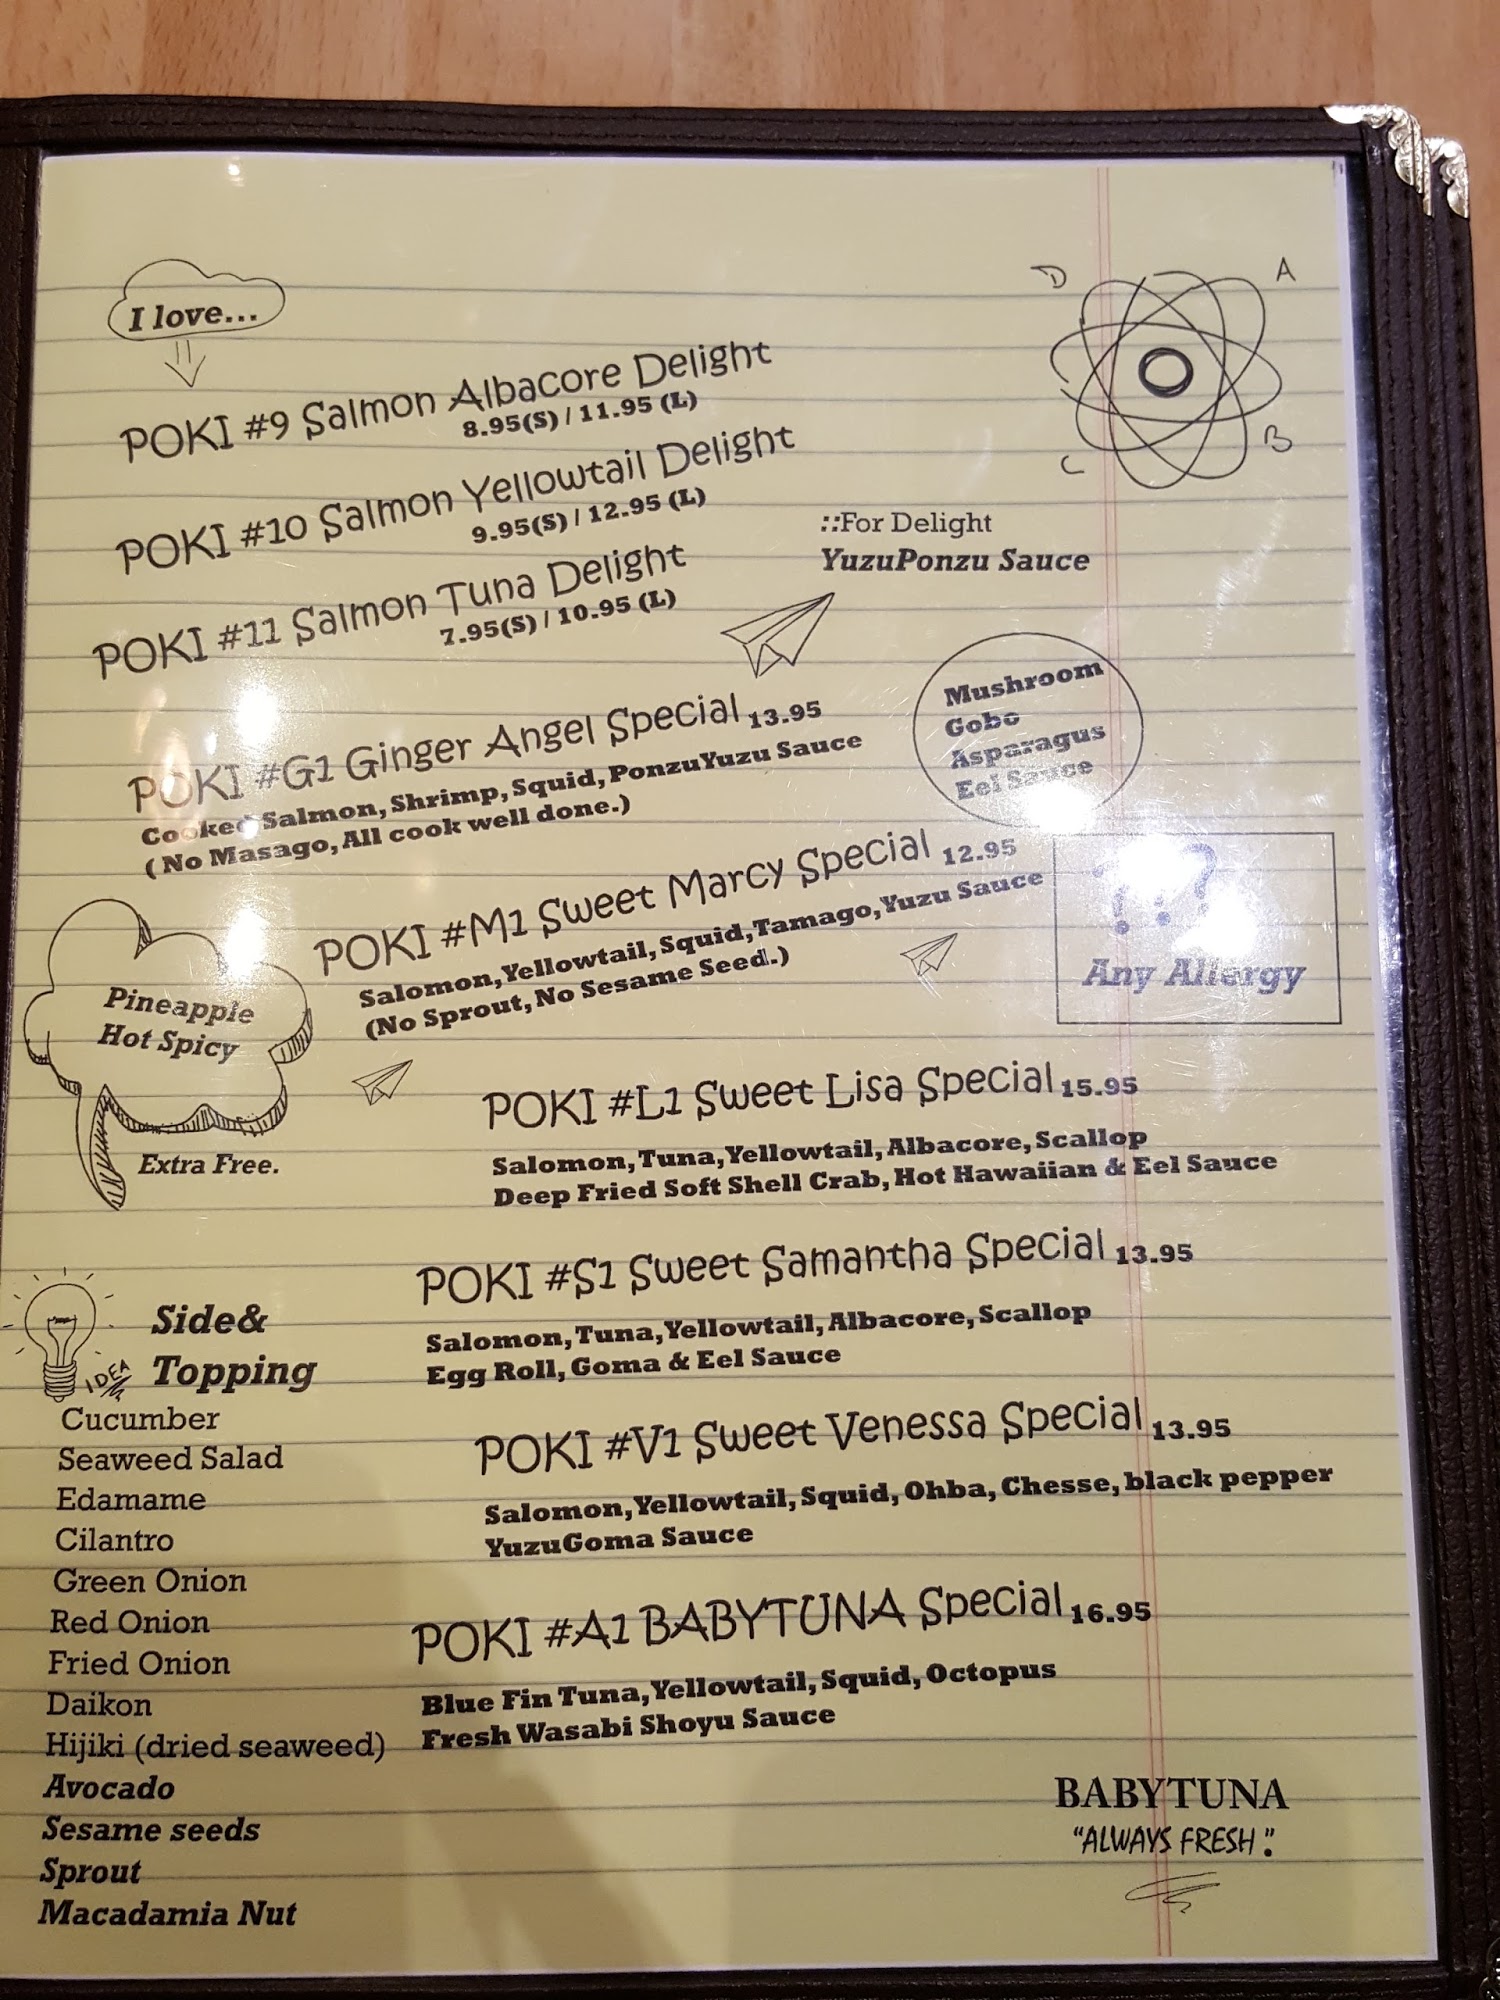 I love...
POKI #9 Salmon Albacore Delight
8.95(S) / 11.95 (L)
POKI #10 Salmon Yellowtail Delight
9.95(S) / 12.95 (L)
POKI #11 Salmon Tuna Delight
7.95(S) / 10.95 (L)
D
A
C
B
::For Delight
YuzuPonzu Sauce
Mushroom
Gobo
Asparagus
Eel Sauce
POKI #G1 Ginger Angel Special 13.95
Cooked Salmon, Shrimp, Squid, PonzuYuzu Sauce
( No Masago, All cook well done.)
POKI #M1 Sweet Marcy Special 12.95
Salomon, Yellowtail, Squid, Tamago, Yuzu Sauce
(No Sprout, No Sesame Seed.)
Any Allergy
Pineapple
Hot Spicy
Extra Free.
POKI #L1 Sweet Lisa Special 15.95
Salomon, Tuna, Yellowtail, Albacore, Scallop
Deep Fried Soft Shell Crab, Hot Hawaiian & Eel Sauce
POKI #S1 Sweet Samantha Special 13.95
Salomon, Tuna, Yellowtail, Albacore, Scallop
Egg Roll, Goma & Eel Sauce
POKI #V1 Sweet Venessa Special 13.95
Salomon, Yellowtail, Squid, Ohba, Chesse, black pepper
YuzuGoma Sauce
POKI #A1 BABYTUNA Special 16.95
Blue Fin Tuna, Yellowtail, Squid, Octopus
Fresh Wasabi Shoyu Sauce
IDEA
Side&
Topping
Cucumber
Seaweed Salad
Edamame
Cilantro
Green Onion
Red Onion
Fried Onion
Daikon
Hijiki (dried seaweed)
Avocado
Sesame seeds
Sprout
Macadamia Nut
BABYTUNA
"ALWAYS FRESH."